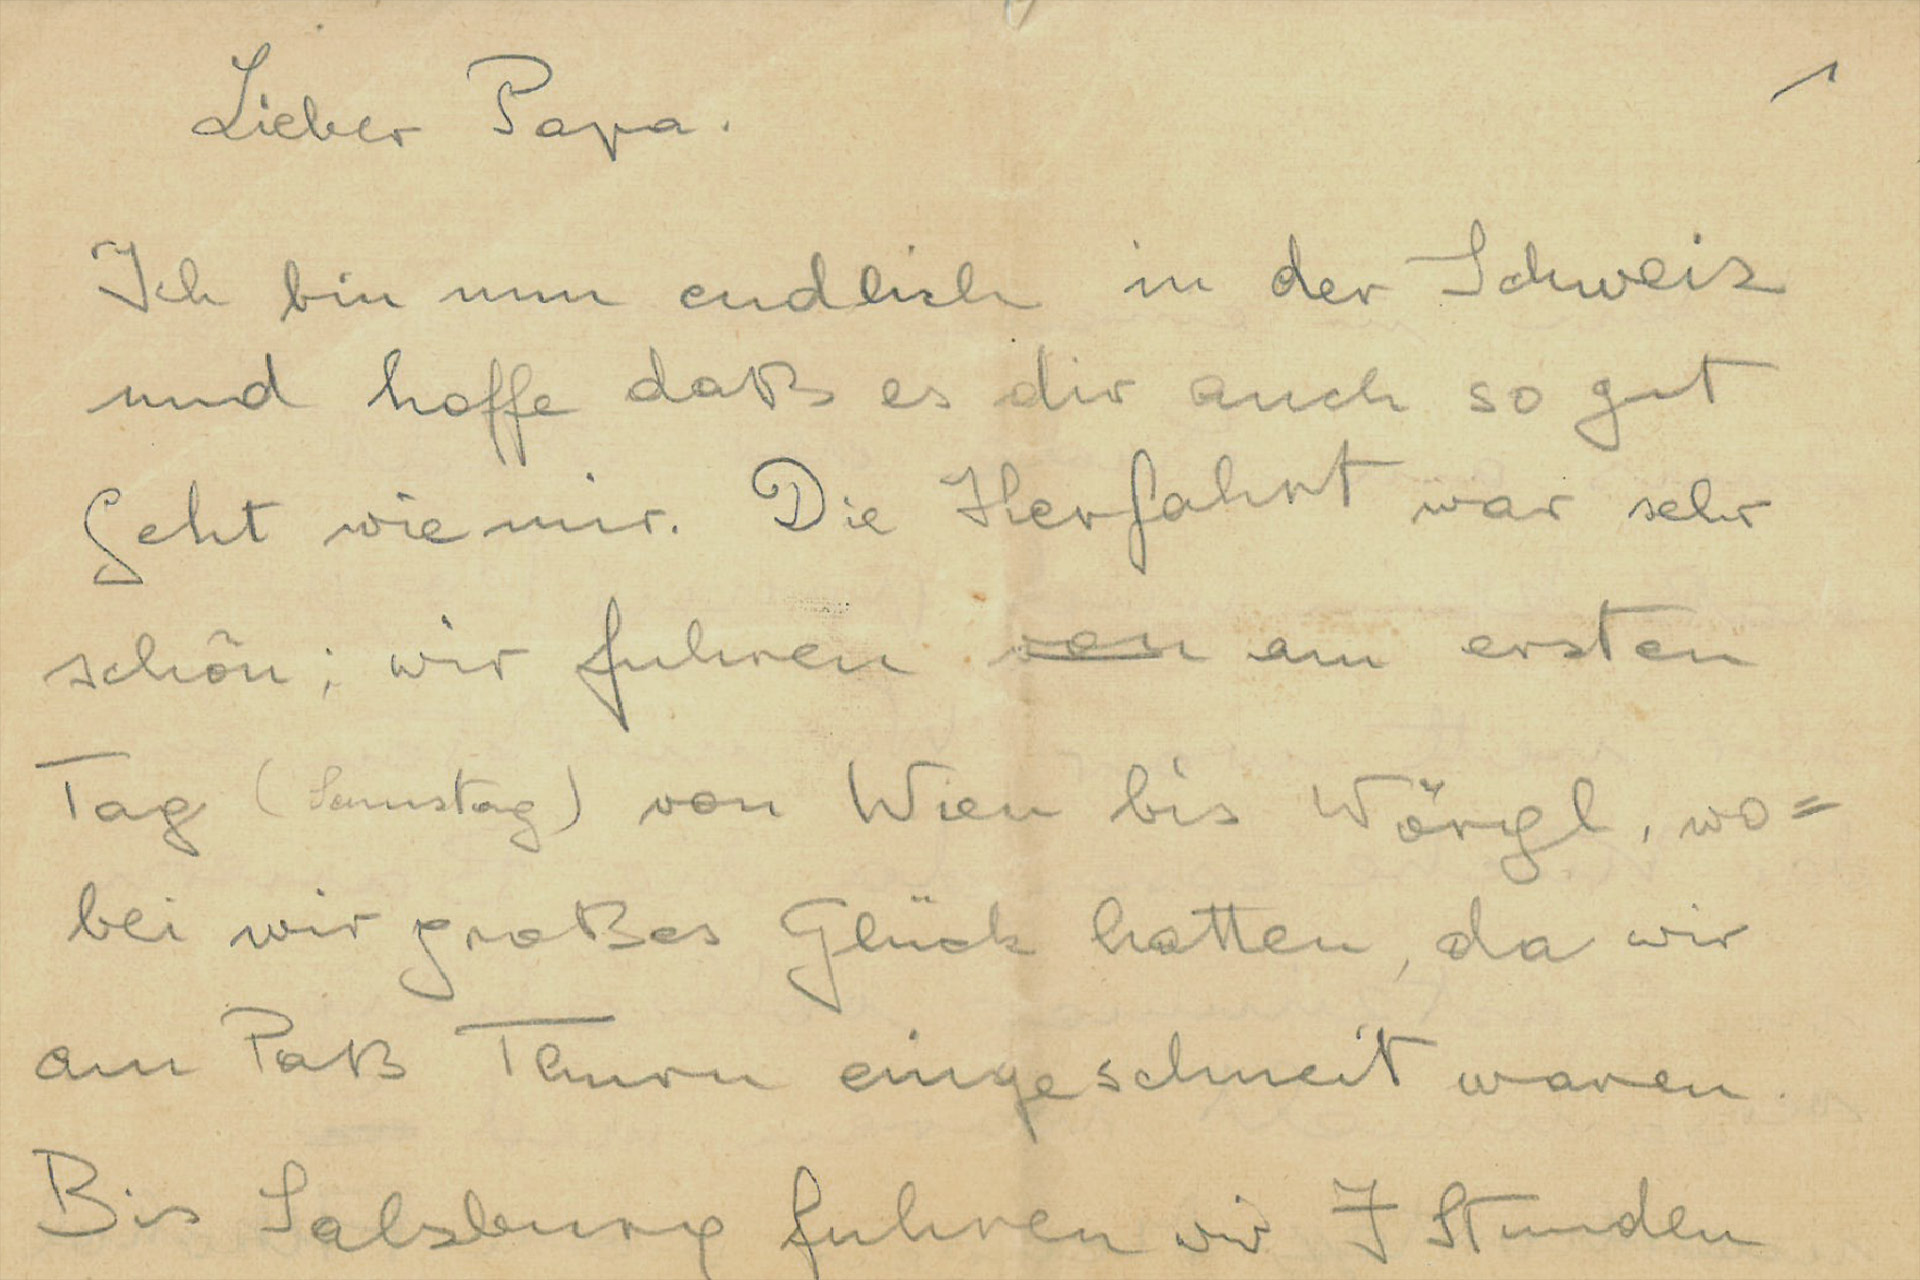 Lieber Papa.
Ich bin nun endlich in der Schweiz
und hoffe daß es dir auch so gut
geht wie mir. Die Herfahrt war sehr
schön; wir fuhren von am ersten
Tag (Samstag) von Wien bis Wörgl, wo=
bei wir großes Glück hatten, da wir
am Paß Thurn eingeschneit waren.
Bis Salzburg fuhren wir 7 Stunden